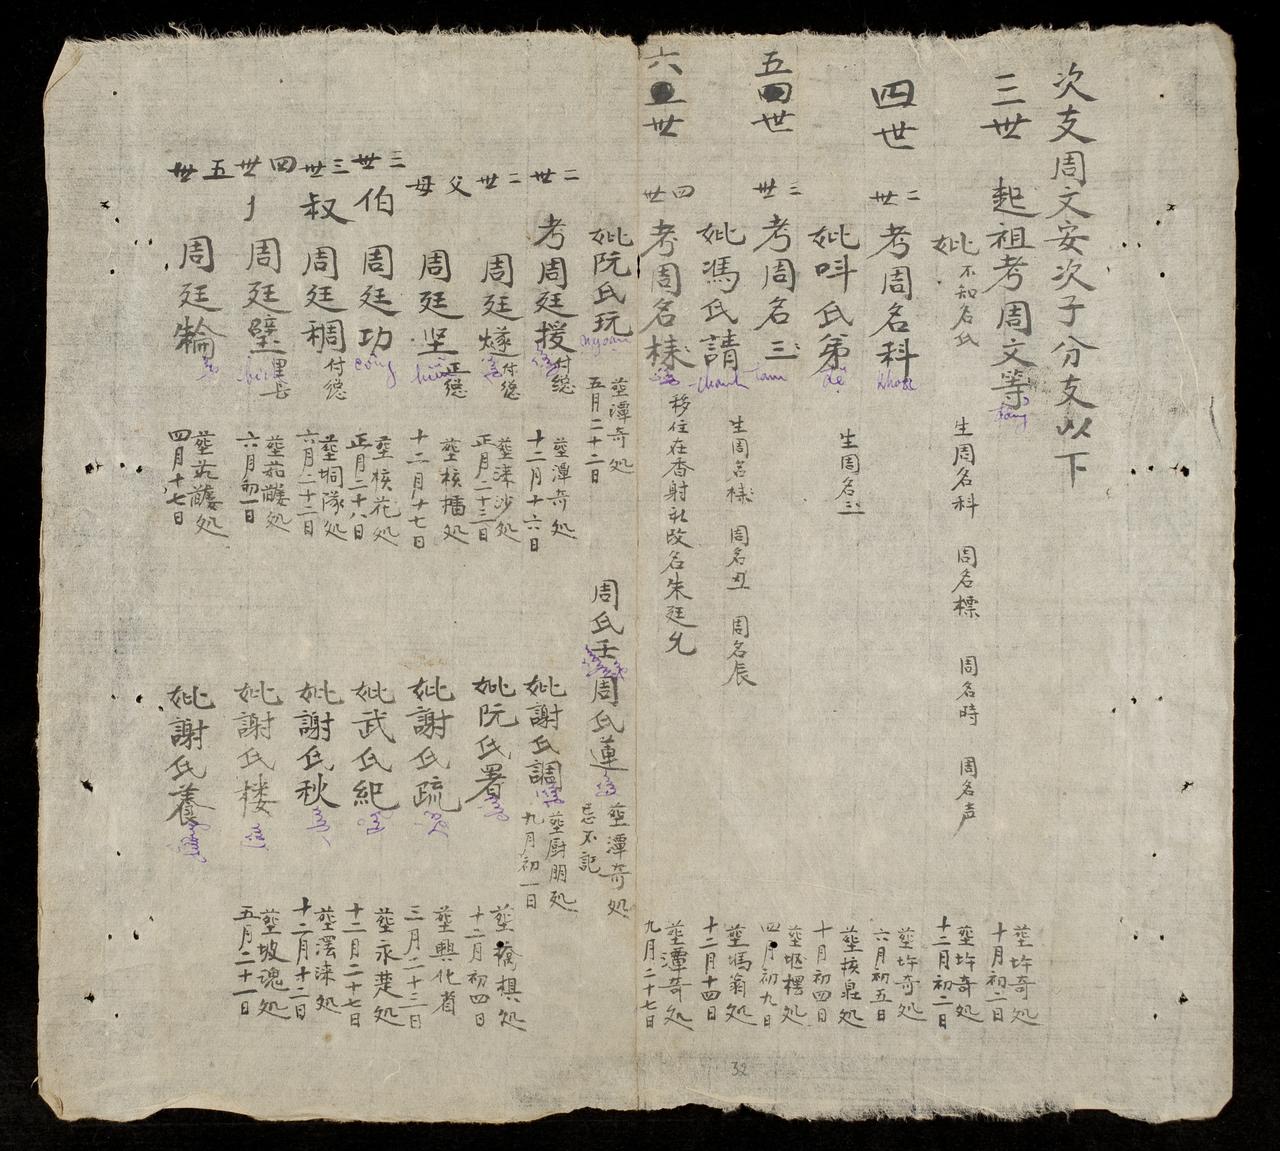 次支周文安次子分支以下
三世 起祖考周文等
塟圩奇処
十月初二日
妣不知名氏
生周名科 周名標 周名時 周名声
塟圩奇処
十二月初二日
四世 二世考周名科
khoa
塟圩奇処
六月初五日
妣呌氏第
đệ
生周名三
塟核泉処
十月初四日
五世 三世考周名三
tam
四月初九日
妣馮氏請
thanh
生周名様 周名丑 周名辰
塟馮翁処
十二月十四日
六世 四世考周名様
移住在香射社改名朱廷允
塟潭奇処
九月二十七日
妣阮氏玩
ngoạn
塟潭奇処
五月二十二日
周氏壬 周氏蓮
塟潭奇処
忌不記
二世 考周廷援
付總
塟潭奇処
十二月十六日
妣謝氏調
塟厨朋処
九月初一日
二世 周廷燧
付總
塟涞沙処
正月二十三日
妣阮氏署
十二月初四日
父母 周廷坚
正總
塟核橎処
十二月十七日
妣謝氏疏
塟興化省
三月二十三日
三世伯 周廷功
công
塟核花処
正月二十八日
妣武氏紀
塟永楚処
十二月二十七日
三世叔 周廷稠
付總
塟垌隊処
六月二十二日
妣謝氏秋
塟澐涞処
十二月十二日
四世 周廷璧
里長
六月初一日
妣謝氏楼
塟坡魂処
五月二十一日
五世 周廷輪
四月十七日
妣謝氏養
32